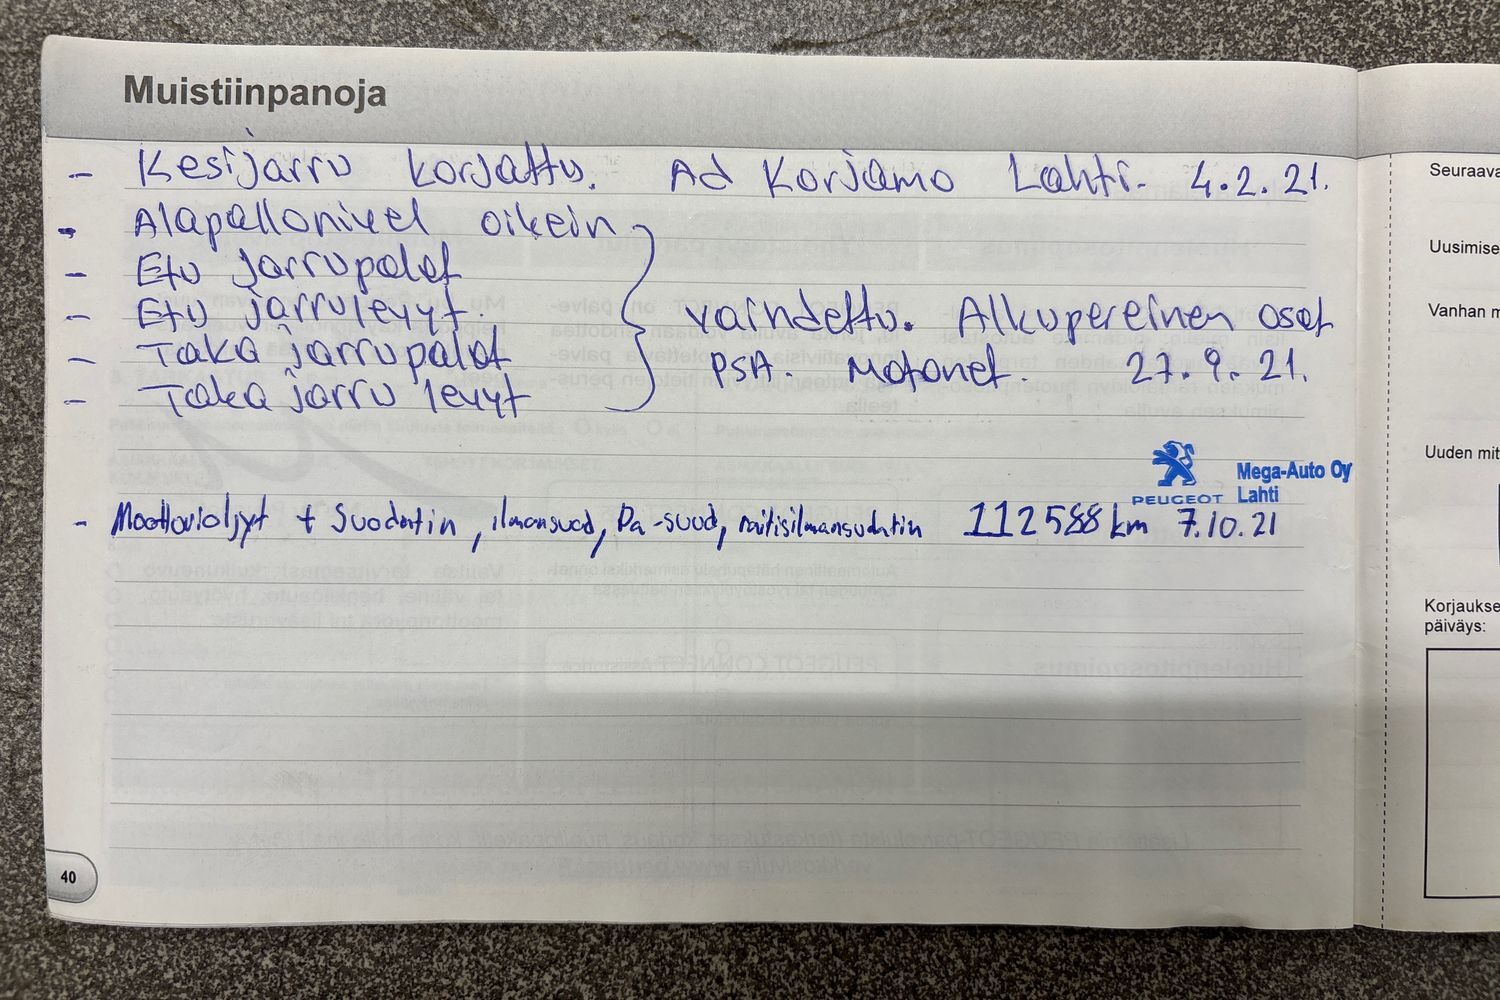 Muistiinpanoja
- Kesijarru korjattu. Ad Korjamo Lahti. 4.2.21.
- Alapallonivel oikein
- Etu jarrupalat
- Etu jarrulevyt.
- Taka jarrupalat
- Taka jarru levyt
vaindettu. Alkupereinen osat
PSA. Motonet 27.9.21.
PEUGEOT
Mega-Auto Oy
Lahti
- Moottoriöljyt + Suodatin, ilmansuod, Pa-suod, raitisilmansuodatin 112588 km 7.10.21
40
Seuraava
Uusimise
Vanhan m
Uuden mit
Korjaukse
päiväys: